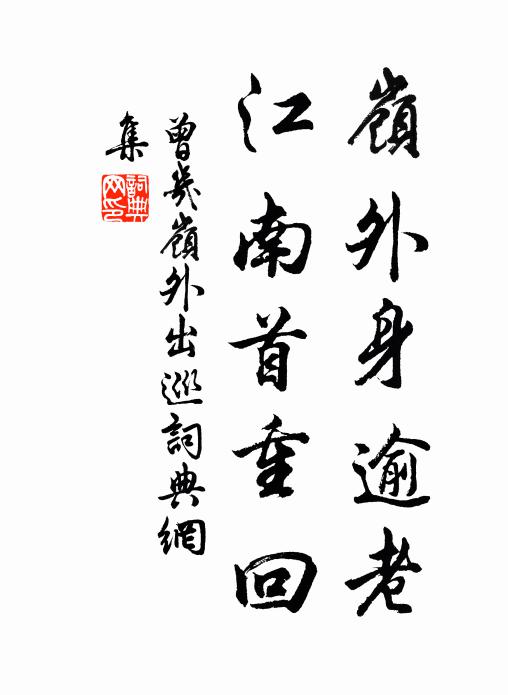 嶺外身逾老
江南首重回
曾幾嶺外出巡詞典網
集
詞典
网印